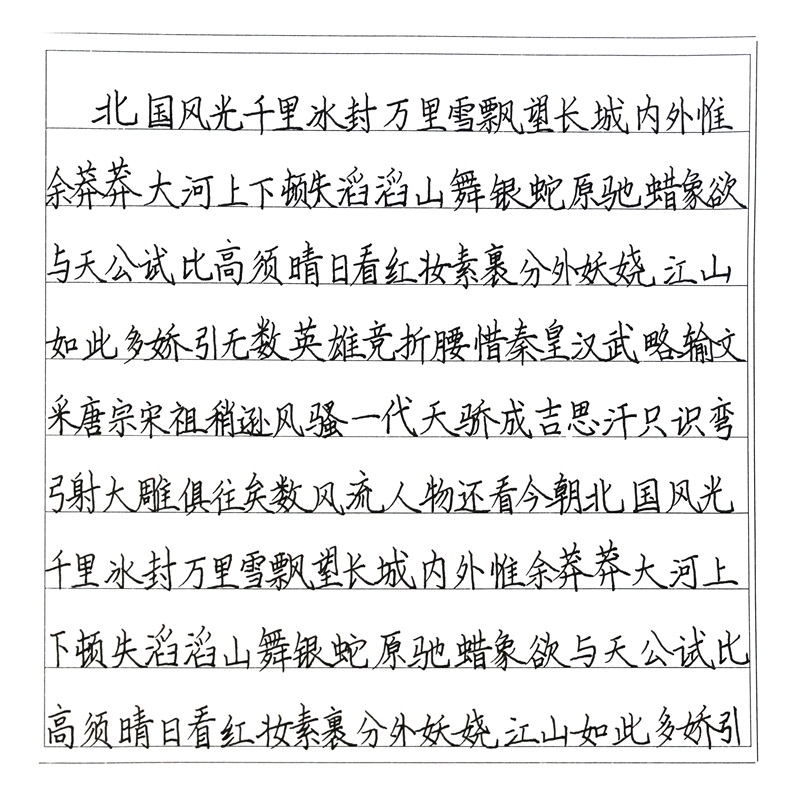 北国风光千里冰封万里雪飘望长城内外惟
余莽莽大河上下顿失滔滔山舞银蛇原驰蜡象欲
与天公试比高须晴日看红妆素裹分外妖娆江山
如此多娇引无数英雄竞折腰惜秦皇汉武略输文
采唐宗宋祖稍逊风骚一代天骄成吉思汗只识弯
弓射大雕俱往矣数风流人物还看今朝北国风光
千里冰封万里雪飘望长城内外惟余莽莽大河上
下顿失滔滔山舞银蛇原驰蜡象欲与天公试比
高须晴日看红妆素裹分外妖娆江山如此多娇引